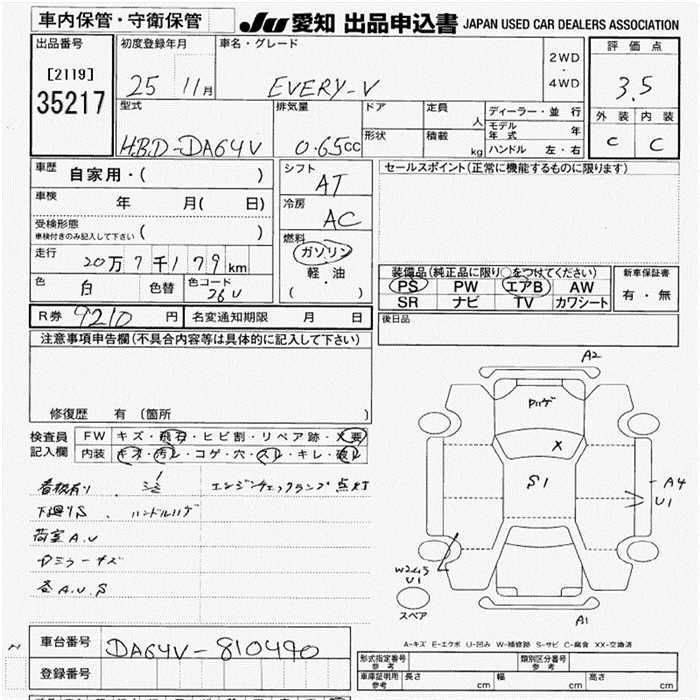 車内保管・守衛保管
JU 愛知 出品申込書 JAPAN USED CAR DEALERS ASSOCIATION
出品番号
[2119]
35217
初度登録年月
25 11月
車名・グレード
EVERY-V
2WD
・
4WD
評価点
3.5
外装 内装
C C
型式
HBD-DA64V
排気量
0.65cc
ドア
形状
定員
人
積載
kg
ディーラー・並行
モデル年式 年
ハンドル 左・右
車歴
自家用・( )
車検
年 月( 日)
受検形態
車検付きのみ記入して下さい ( )
走行
20万7千179km
色
白
色替
色コード
26U
R券 9210 円
名変通知期限 月 日
シフト
AT
冷房
AC
燃料
ガソリン
軽・油
( )
セールスポイント(正常に機能するものに限ります)
装備品(純正品に限り○をつけてください)
PS PW エアB AW
SR ナビ TV カワシート
新車保証書
有・無
後日品
注意事項申告欄(不具合内容等は具体的に記入して下さい)
修復歴 有 (箇所 )
検査員
記入欄
FW キズ・飛石・ヒビ割・リペア跡・X要
内装 キズ・汚レ・コゲ・穴・スレ・キレ・破レ
看板有り シミ エンジンチェックランプ点灯
下廻りS ハンドルハゲ
荷室A.U
Pミラーキズ
各A.U.S
A2
Pハゲ
X
S1
A4
U1
W2
U1
スペア
A1
A-キズ E-エクボ U-凹み W-補修跡 S-サビ C-腐食 XX-交換済
車台番号 DA64V-810490
登録番号
形式指定番号
参考
類別区分番号
参考
車庫証明用
参考
長さ cm 幅 cm 高さ cm